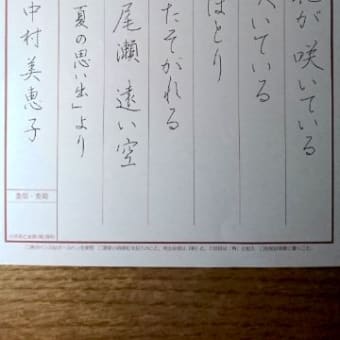 花が咲いている
咲いている
ほとり
たそがれる
尾瀬 遠い空
夏の思い出」より
中村美恵子